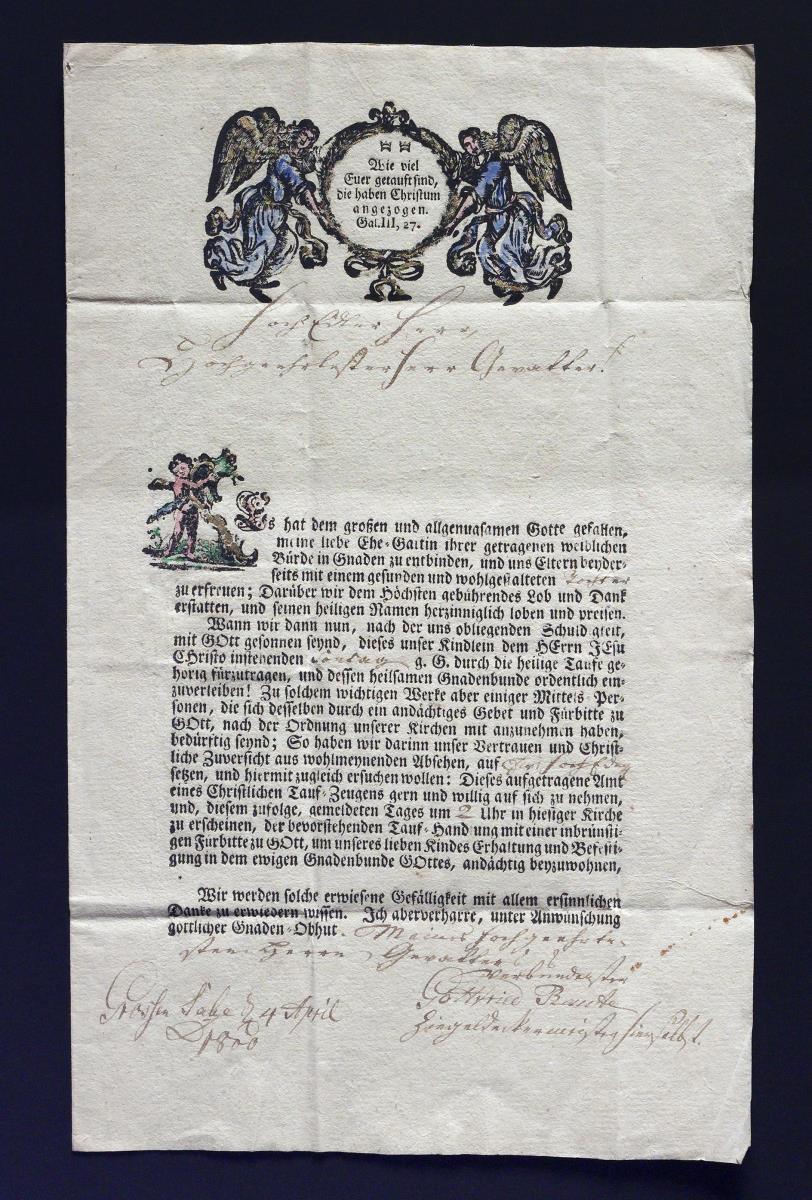 Wie viel
Euer getauft sind,
die haben Christum
angezogen.
Gal. III, 27.
HochEdler Herr,
Hochgeehrtester Herr Gevatter!
Es hat dem großen und allgenugsamen Gotte gefallen,
meine liebe Ehe-Gattin ihrer getragenen weiblichen
Bürde in Gnaden zu entbinden, und uns Eltern beyder-
seits mit einem gesunden und wohlgestalteten Tochter
zu erfreuen; Darüber wir dem Höchsten gebührendes Lob und Dank
erstatten, und seinen heiligen Namen herzinniglich loben und preisen.
Wann wir dann nun, nach der uns obliegenden Schuldigkeit,
mit GOtt gesonnen seynd, dieses unser Kindlein dem HErrn JEsu
CHristo instehenden Sontag g. G. durch die heilige Taufe ge-
hörig fürzutragen, und dessen heilsamen Gnadenbunde ordentlich ein-
zuverleiben! Zu solchem wichtigen Werke aber einiger Mittels-Per-
sonen, die sich desselben durch ein andächtiges Gebet und Fürbitte zu
GOtt, nach der Ordnung unserer Kirchen mit anzunehmen haben,
bedürftig seynd; So haben wir darinn unser Vertrauen und Christ-
liche Zuversicht aus wohlmeynenden Absehen, auf
setzen, und hiermit zugleich ersuchen wollen: Dieses aufgetragene Amt
eines Christlichen Tauf-Zeugens gern und willig auf sich zu nehmen,
und, diesem zufolge, gemeldeten Tages um 2 Uhr in hiesiger Kirche
zu erscheinen, der bevorstehenden Tauf-Handlung mit einer inbrünsti-
gen Fürbitte zu GOtt, um unseres lieben Kindes Erhaltung und Befesti-
gung in dem ewigen Gnadenbunde GOttes, andächtig beyzuwohnen,
Wir werden solche erwiesene Gefälligkeit mit allem ersinnlichen
Danke zu erwiedern wissen. Ich aber verharre, unter Anwünschung
göttlicher Gnaden-Obhut. Meines Hochgeehrte-
sten Herrn Gevatters
verbundenster
Gottfried
Ziegeldeckermeister hierselbst.
4 April
1800